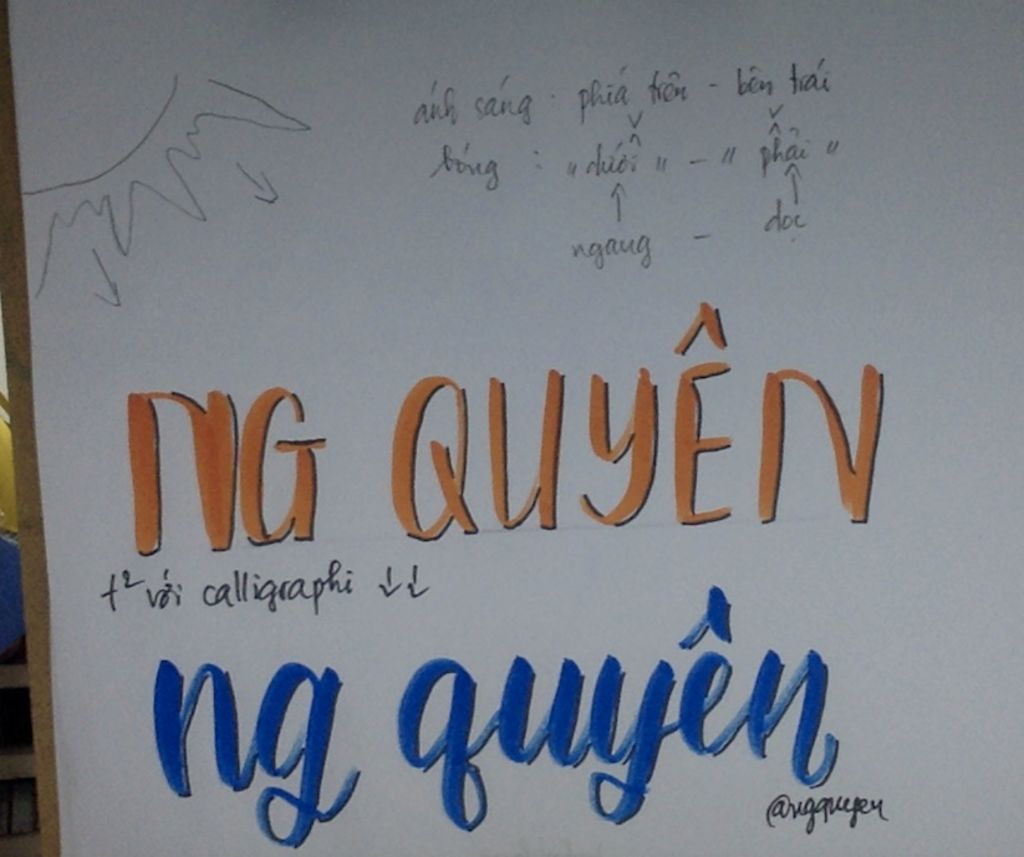 ánh sáng : phía trên - bên trái
bóng : "dưới" - "phải"
ngang - dọc
NG QUYÊN
t² với calligraphi ↓↓
ng quyên
@ngquyen